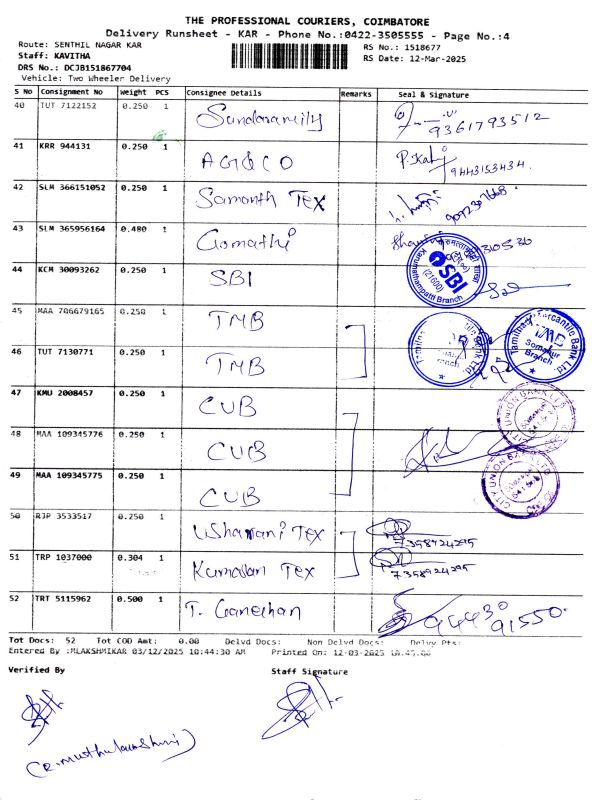 THE PROFESSIONAL COURIERS, COIMBATORE
Delivery Runsheet - KAR - Phone No.:0422-3505555 - Page No.:4
Route: SENTHIL NAGAR KAR
RS No.: 1518677
Staff: KAVITHA
RS Date: 12-Mar-2025
DRS No.: DCJB151867704
Vehicle: Two Wheeler Delivery
S No Consignment No Weight PCS Consignee Details Remarks Seal & Signature
40 TUT 7122152 0.250 1 Sundaramily 9361793512
41 KRR 944131 0.250 1 AG&CO P.Kalj 9443153434.
42 SLM 366151052 0.250 1 Samanth Tex
43 SLM 365956164 0.480 1 Gomathi
44 KCM 30093262 0.250 1 SBI SBI (21600) Karumathampatti Branch
45 MAA 706679165 0.250 1 TMB
46 TUT 7130771 0.250 1 TMB Tamilnad Mercantile Bank Ltd. TMB Somanur Branch
47 KMU 2008457 0.250 1 CUB CITY UNION BANK LTD
48 MAA 109345776 0.250 1 CUB
49 MAA 109345775 0.250 1 CUB CITY UNION BANK LTD
50 RJP 3533517 0.250 1 Ushamani Tex 7358924295
51 TRP 1037000 0.304 1 Kumaran Tex 7358924295
52 TRT 5115962 0.500 1 T. Ganeshan 94430 91550.
Tot Docs: 52 Tot COD Amt: 0.00 Delvd Docs: Non Delvd Docs: Delvy Pts:
Entered By :MLAKSHMIKAR 03/12/2025 10:44:30 AM Printed On: 12-03-2025 10.45.00
Verified By Staff Signature
(R.Muthulakshmi)